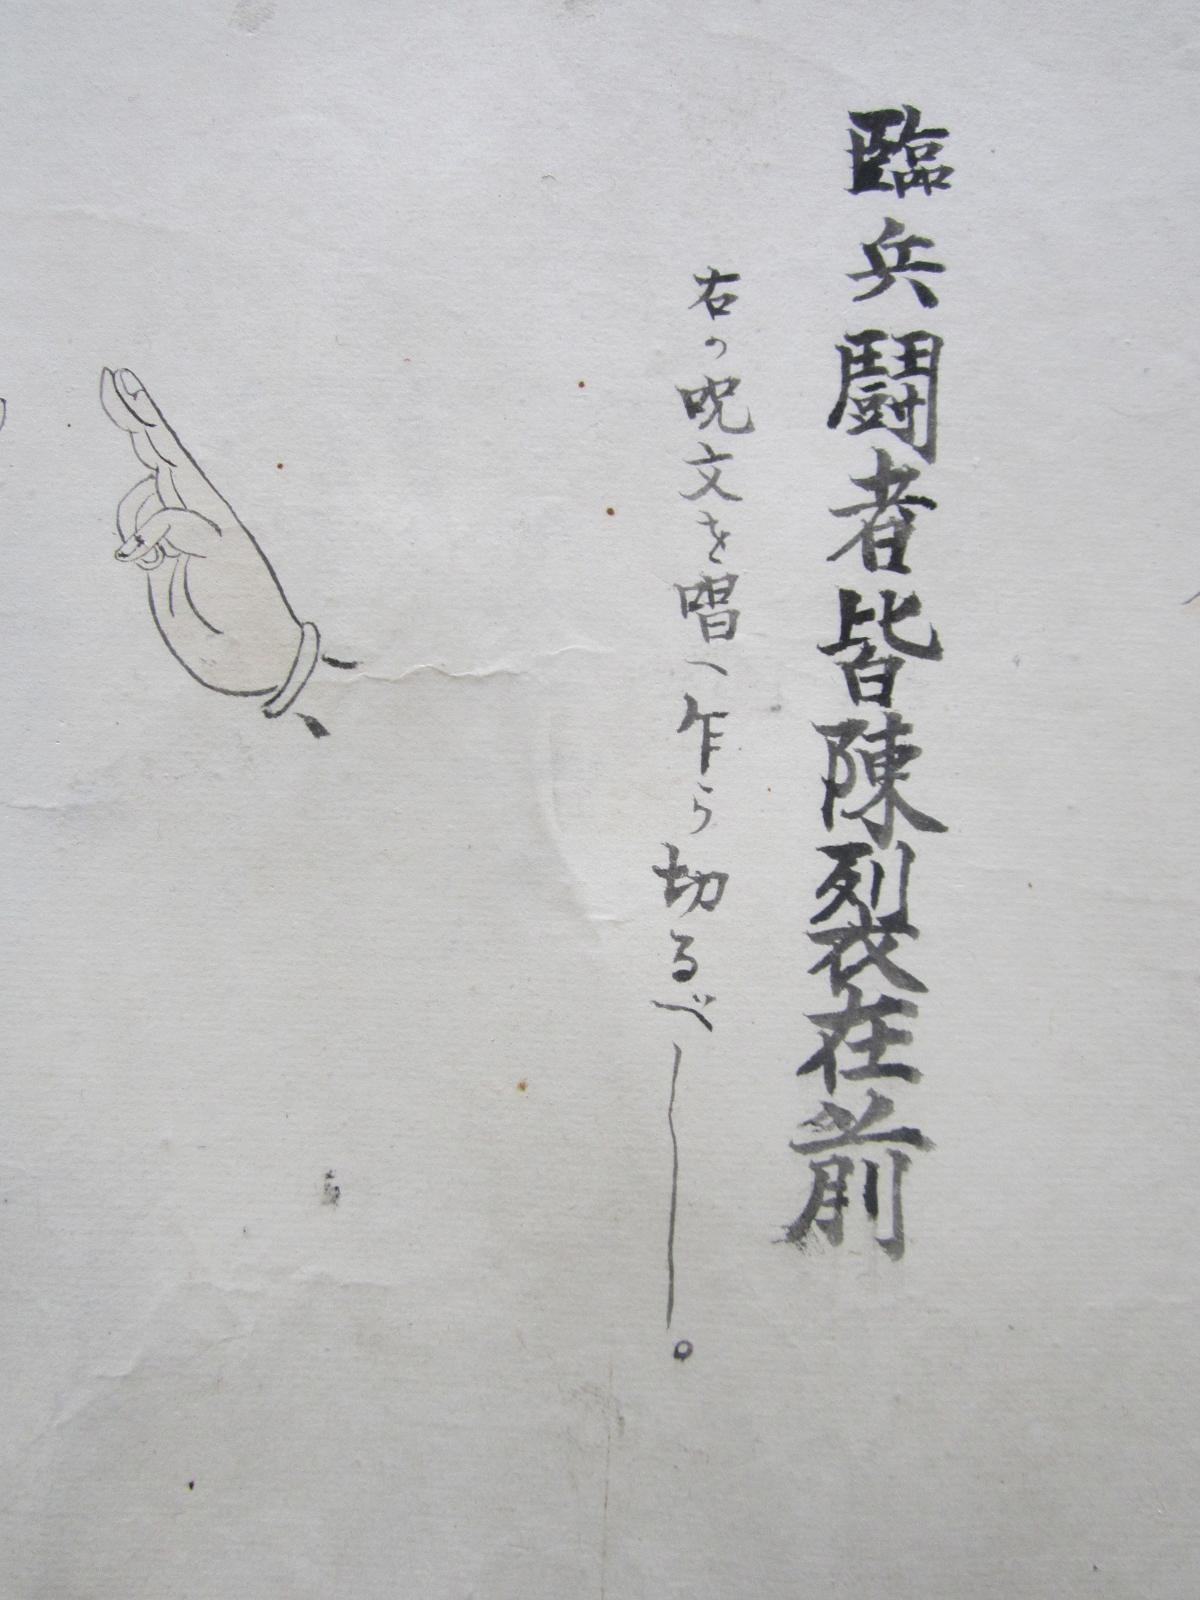 臨兵鬪者皆陳裂在前
右の呪文を唱へ乍ら切るべし。